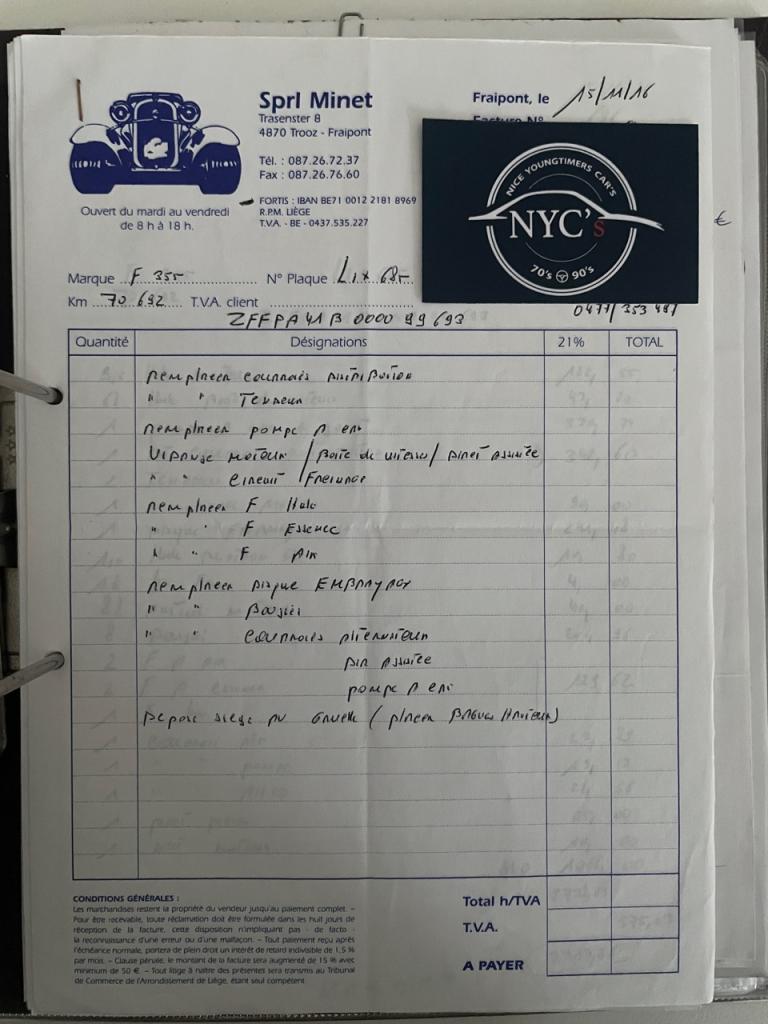 Sprl Minet
Trasenster 8
4870 Trooz - Fraipont
Tél. : 087.26.72.37
Fax : 087.26.76.60
FORTIS : IBAN BE71 0012 2181 8969
R.P.M. LIÈGE
T.V.A. - BE - 0437.535.227
Ouvert du mardi au vendredi
de 8 h à 18 h.
Fraipont, le 15/11/16
Facture N°
NICE YOUNGTIMERS CAR'S
NYC's
70's 90's
€
Marque F 355 N° Plaque
Km 70 692 T.V.A. client
0477/353 481
ZFFPA41B 0000 99693
Quantité Désignations 21% TOTAL
Remplacer courroies distribution
" " Tendeur
Remplacer pompe à eau
Vidange moteur / Boite de vitesse / Direct Assistée
" " circuit Freinage
Remplacer F Huile
" " F Essence
" " F Air
Remplacer disque Embrayage
" " Bougies
" " courroies Alternateur
Dir Assitée
pompe à eau
Depose siege AV Gauche (placer Bagues Hauteur)
Total h/TVA
T.V.A.
A PAYER
CONDITIONS GÉNÉRALES :
Les marchandises restent la propriété du vendeur jusqu'au paiement complet. –
Pour être recevable, toute réclamation doit être formulée dans les huit jours de
réception de la facture, cette disposition n'impliquant pas - de facto -
la reconnaissance d'une erreur ou d'une malfaçon. – Tout paiement reçu après
l'échéance normale, portera de plein droit un intérêt de retard indivisible de 1,5 %
par mois. – Clause pénale, le montant de la facture sera augmenté de 15 % avec
minimum de 50 €. – Tout litige à naître des présentes sera transmis au Tribunal
de Commerce de l'Arrondissement de Liège, étant seul compétent.